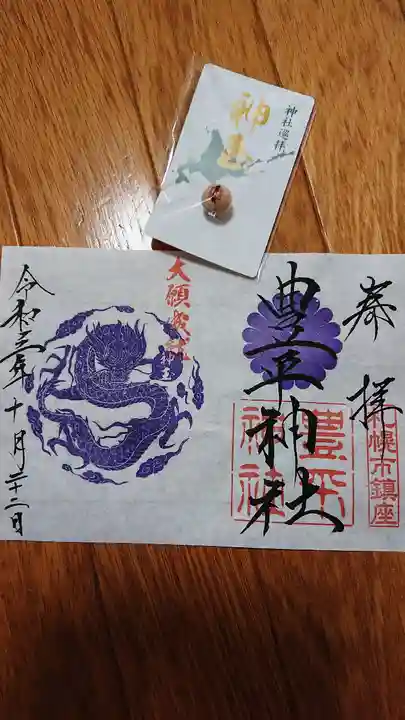 神社巡拝
神玉
奉拝
札幌市鎮座
豊平神社
豊平
神社
大願成就
令和三年十月二十二日